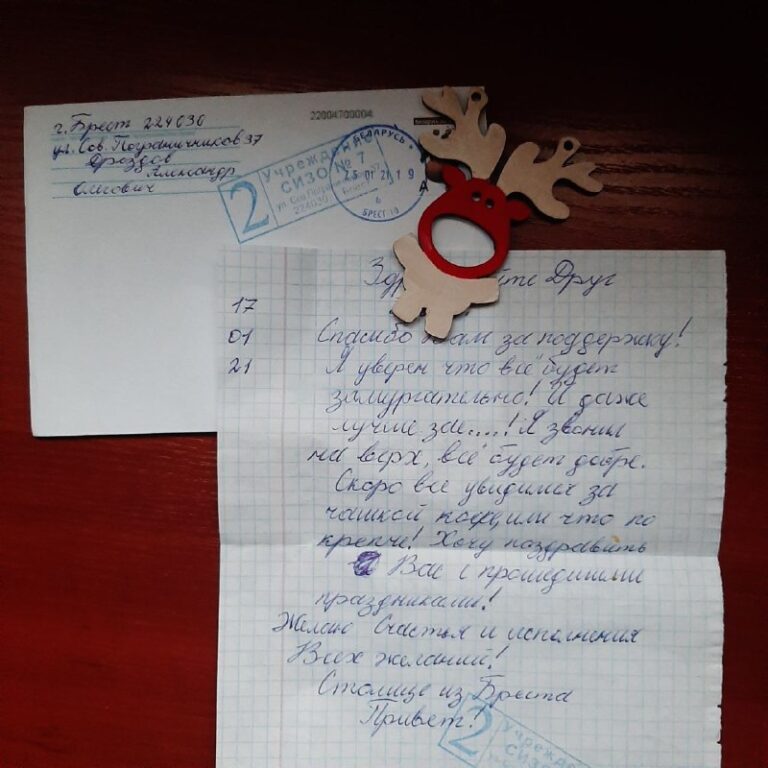 г. Брест 224030
ул. Сов. Пограничников 37
Дроздов
Александр
Олегович
22004700004
БЕЛАРУСЬ
25 01 21 19
БРЕСТ
2
Учреждение
СИЗО № 7
224030
Друг
17
01
21
Спасибо Вам за поддержку!
Я уверен что всё будет
замургательно! И даже
лучше зае....! Я звонил
на верх, всё будет добре.
Скоро все увидимся за
чашкой кофе, или что по
крепче! Хочу поздравить
Вас с прошедшими
праздниками!
Желаю Счастья и исполнения
Всех желаний!
Столице из Бреста
Привет!
2
Учрежде
СИЗО